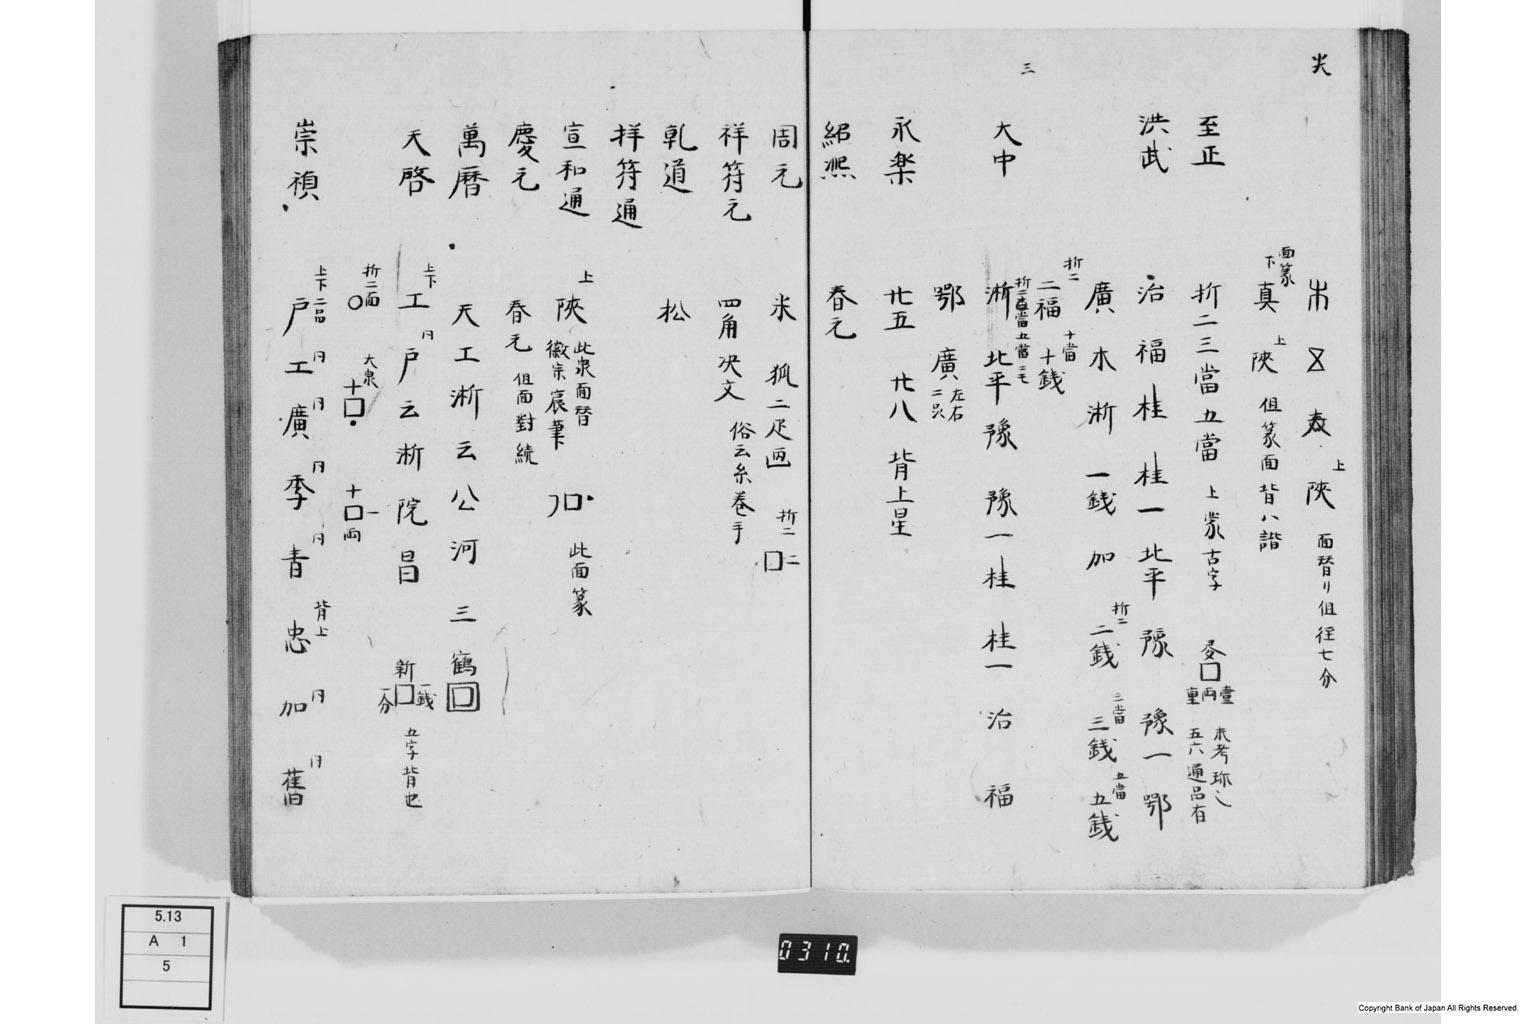 面篆
下 真 上 陝 但篆面背八諧
至正 折二 三當 五當 上蒙古字
未考珎シ
五六通品有
洪武 治 福 桂 桂一 北平 豫 豫一 鄂
廣 木 淅 一銭 加 折二 二銭 三當 三銭 五當 五銭
折二 二福 十當 十銭
三
大中 淅 北平 豫 豫一 桂 桂一 治 福
鄂 廣 左右
永楽 廿五 廿八 背上星
紹熙 春元
周元 米 狐 二疋 折二
祥符元 四角决文 俗云糸巻手
乾道 松
祥符通
宣和通 上 陝 此泉面替 徽宗宸筆 此面篆
慶元 春元 但面對続
萬暦 天 工 淅 云 公 河 三 鶴
天啓 上下 工 戸 云 淅 院 昌 新 一銭 一分 五字背也
折二面 大泉 十 十一両
崇禎 上下 二品 戸 工 廣 季 青 忠 背上 加 舊
5.13
A 1
5
0310.
Copyright Bank of Japan All Rights Reserved.